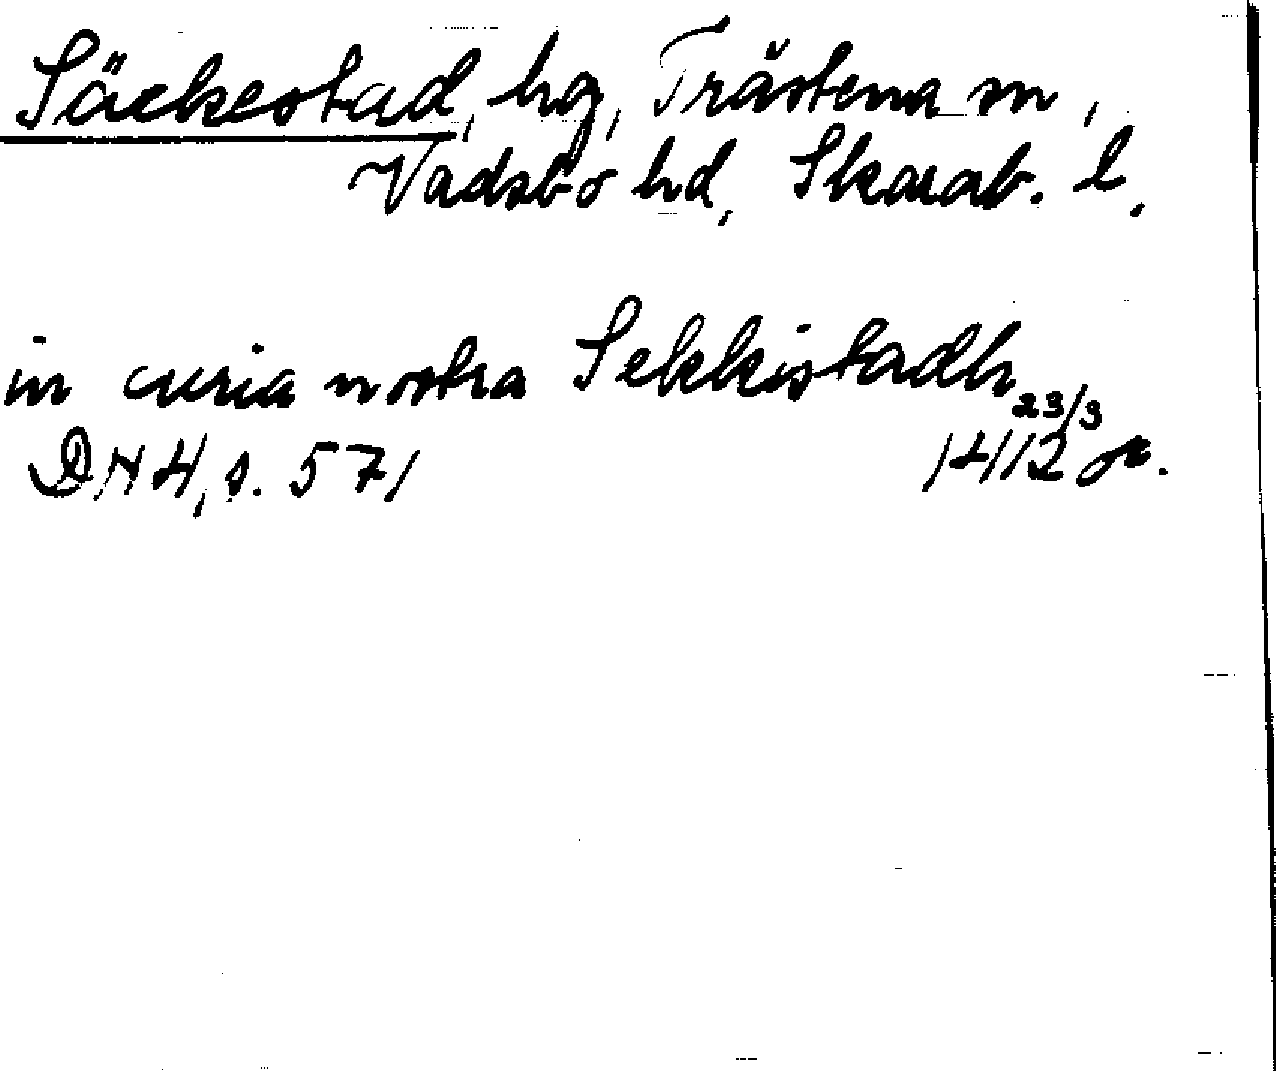 Säckestad, hg, Trästena sn,
Vadsbo hd, Skarab. l.
in curia nostra Sekkistadh
23/3
DN 4, s. 571 1412 or.